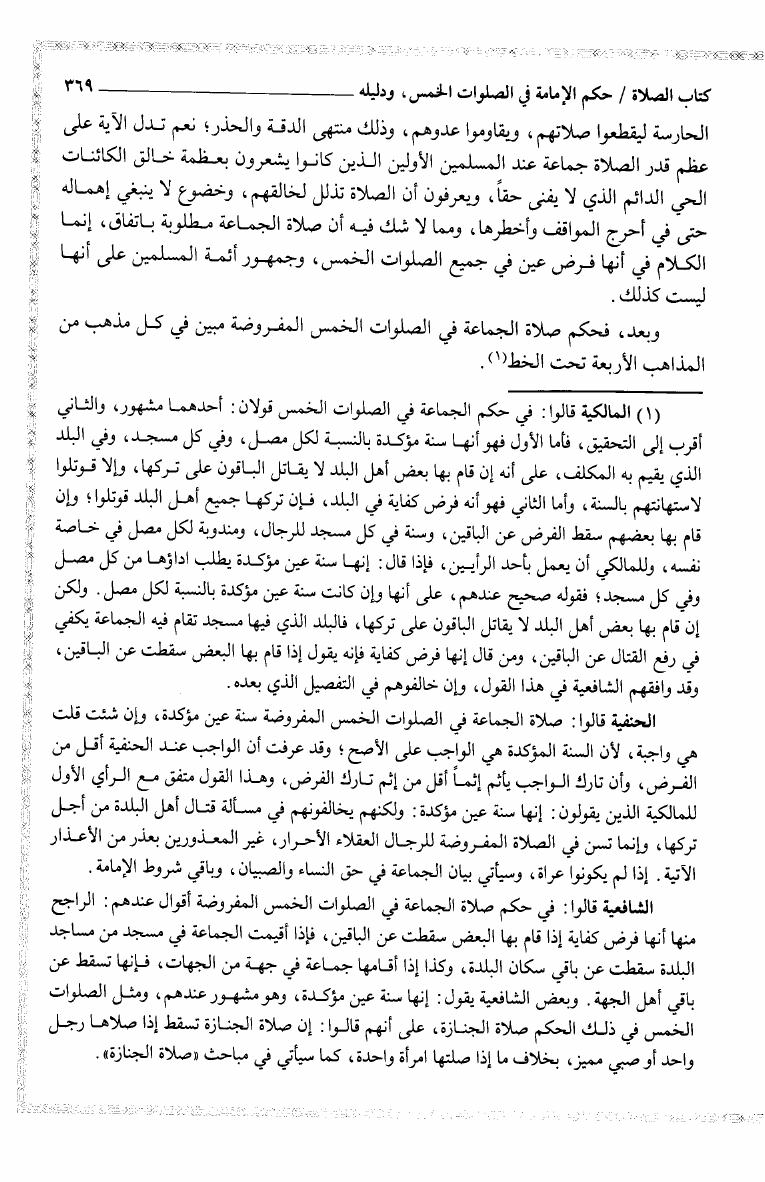 كتاب الصلاة / حكم الإمامة في الصلوات الخمس، ودليله ٣٦٩
الحارسة ليقطعوا صلاتهم، ويقاوموا عدوهم، وذلك منتهى الدقة والحذر؛ نعم تدل الآية على
عظم قدر الصلاة جماعة عند المسلمين الأولين الذين كانوا يشعرون بعظمة خالق الكائنات
الحي الدائم الذي لا يفنى حقاً، ويعرفون أن الصلاة تذلل لخالقهم، وخضوع لا ينبغي إهماله
حتى في أحرج المواقف وأخطرها، ومما لا شك فيه أن صلاة الجماعة مطلوبة باتفاق، إنما
الكلام في أنها فرض عين في جميع الصلوات الخمس، وجمهور أئمة المسلمين على أنها
ليست كذلك.
وبعد، فحكم صلاة الجماعة في الصلوات الخمس المفروضة مبين في كل مذهب من
المذاهب الأربعة تحت الخط(١).
(١) المالكية قالوا: في حكم الجماعة في الصلوات الخمس قولان: أحدهما مشهور، والثاني
أقرب إلى التحقيق، فأما الأول فهو أنها سنة مؤكدة بالنسبة لكل مصل، وفي كل مسجد، وفي البلد
الذي يقيم به المكلف، على أنه إن قام بها بعض أهل البلد لا يقاتل الباقون على تركها، وإلا قوتلوا
لاستهانتهم بالسنة، وأما الثاني فهو أنه فرض كفاية في البلد، فإن تركها جميع أهل البلد قوتلوا؛ وإن
قام بها بعضهم سقط الفرض عن الباقين، وسنة في كل مسجد للرجال، ومندوبة لكل مصل في خاصة
نفسه، وللمالكي أن يعمل بأحد الرأيين، فإذا قال: إنها سنة عين مؤكدة يطلب اداؤها من كل مصل
وفي كل مسجد؛ فقوله صحيح عندهم، على أنها وإن كانت سنة عين مؤكدة بالنسبة لكل مصل. ولكن
إن قام بها بعض أهل البلد لا يقاتل الباقون على تركها، فالبلد الذي فيها مسجد تقام فيه الجماعة يكفي
في رفع القتال عن الباقين، ومن قال إنها فرض كفاية فإنه يقول إذا قام بها البعض سقطت عن الباقين،
وقد وافقهم الشافعية في هذا القول، وإن خالفوهم في التفصيل الذي بعده.
الحنفية قالوا: صلاة الجماعة في الصلوات الخمس المفروضة سنة عين مؤكدة، وإن شئت قلت
هي واجبة، لأن السنة المؤكدة هي الواجب على الأصح؛ وقد عرفت أن الواجب عند الحنفية أقل من
الفرض، وأن تارك الواجب يأثم إثماً أقل من إثم تارك الفرض، وهذا القول متفق مع الرأي الأول
للمالكية الذين يقولون: إنها سنة عين مؤكدة: ولكنهم يخالفونهم في مسألة قتال أهل البلدة من أجل
تركها، وإنما تسن في الصلاة المفروضة للرجال العقلاء الأحرار، غير المعذورين بعذر من الأعذار
الآتية. إذا لم يكونوا عراة، وسيأتي بيان الجماعة في حق النساء والصبيان، وباقي شروط الإمامة.
الشافعية قالوا: في حكم صلاة الجماعة في الصلوات الخمس المفروضة أقوال عندهم: الراجح
منها أنها فرض كفاية إذا قام بها البعض سقطت عن الباقين، فإذا أقيمت الجماعة في مسجد من مساجد
البلدة سقطت عن باقي سكان البلدة، وكذا إذا أقامها جماعة في جهة من الجهات، فإنها تسقط عن
باقي أهل الجهة. وبعض الشافعية يقول: إنها سنة عين مؤكدة، وهو مشهور عندهم، ومثل الصلوات
الخمس في ذلك الحكم صلاة الجنازة، على أنهم قالوا: إن صلاة الجنازة تسقط إذا صلاها رجل
واحد أو صبي مميز، بخلاف ما إذا صلتها امرأة واحدة، كما سيأتي في مباحث «صلاة الجنازة».